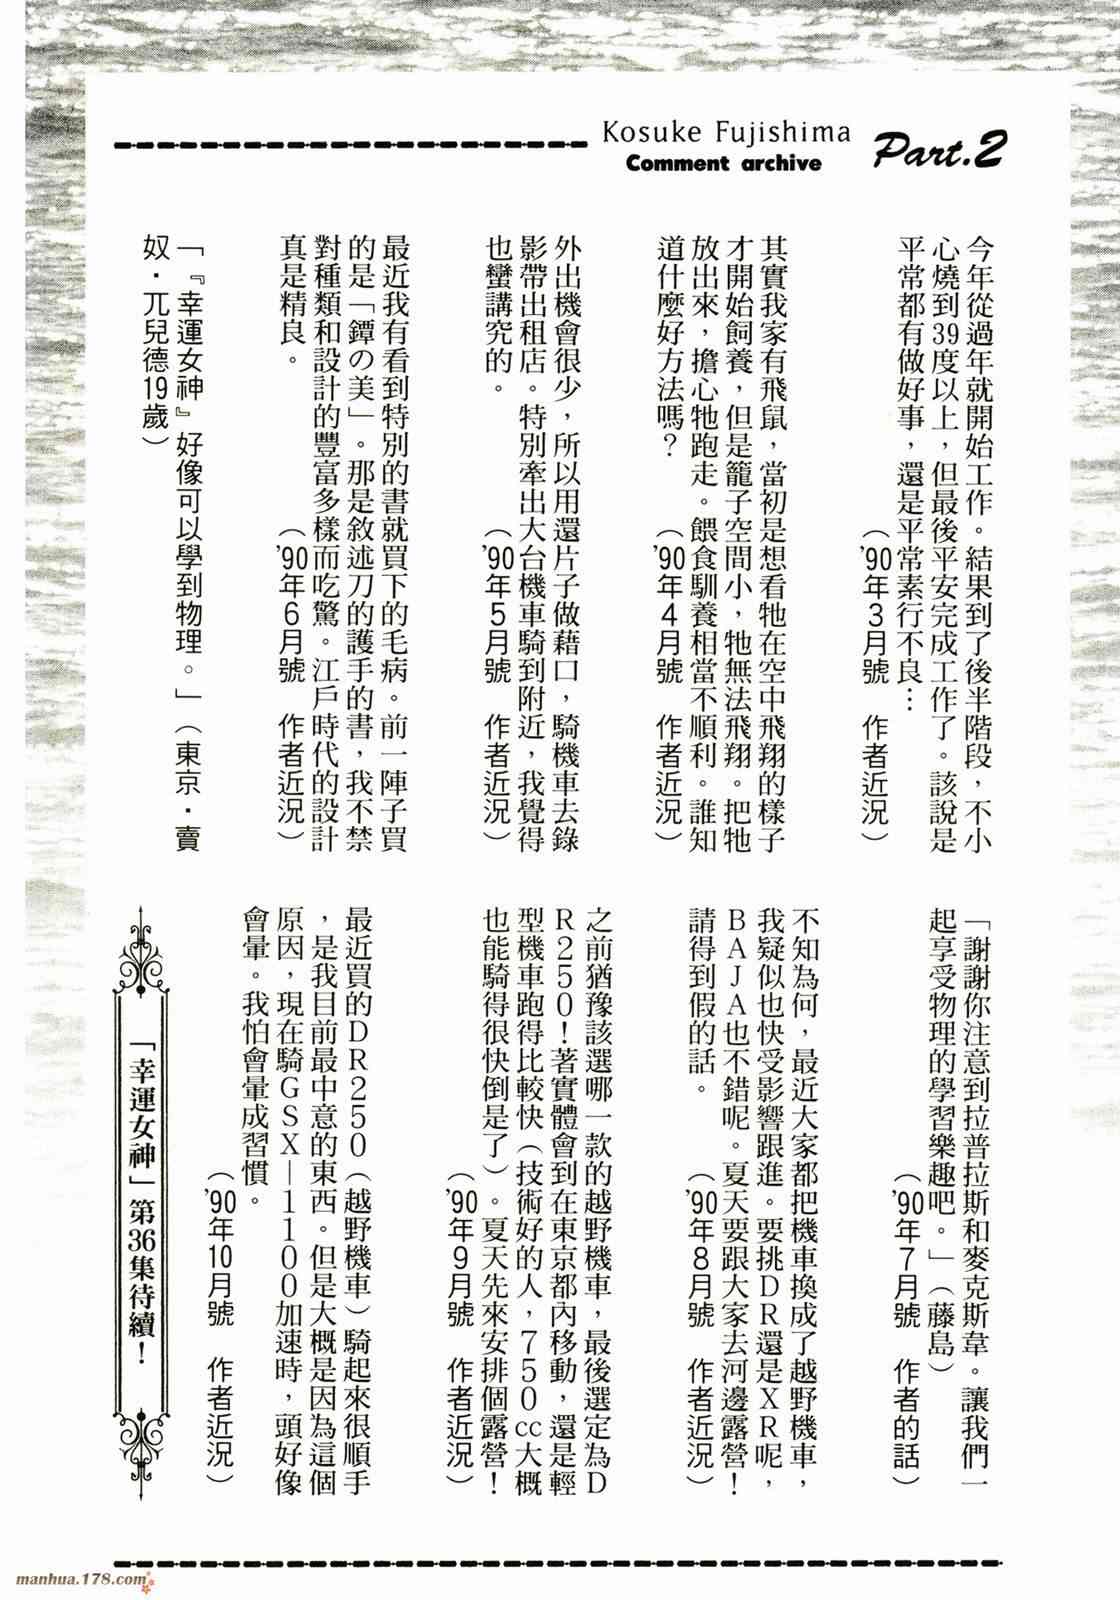 Kosuke Fujishima
Comment archive
Part.2
今年從過年就開始工作。結果到了後半階段，不小
心燒到39度以上，但最後平安完成工作了。該說是
平常都有做好事，還是平常素行不良…
（'90年3月號　作者近況）
其實我家有飛鼠，當初是想看牠在空中飛翔的樣子
才開始飼養，但是籠子空間小，牠無法飛翔。把牠
放出來，擔心牠跑走。餵食馴養相當不順利。誰知
道什麼好方法嗎？
（'90年4月號　作者近況）
外出機會很少，所以用還片子做藉口，騎機車去錄
影帶出租店。特別牽出大台機車騎到附近，我覺得
也蠻講究的。
（'90年5月號　作者近況）
最近我有看到特別的書就買下的毛病。前一陣子買
的是「鐔の美」。那是敘述刀的護手的書，我不禁
對種類和設計的豐富多樣而吃驚。江戶時代的設計
真是精良。
（'90年6月號　作者近況）
「『幸運女神』好像可以學到物理。」（東京・賣
奴・兀兒德19歲）
「謝謝你注意到拉普拉斯和麥克斯韋。讓我們一
起享受物理的學習樂趣吧。」（藤島）
（'90年7月號　作者的話）
不知為何，最近大家都把機車換成了越野機車，
我疑似也快受影響跟進。要挑DR還是XR呢，
BAJA也不錯呢。夏天要跟大家去河邊露營！
請得到假的話。
（'90年8月號　作者近況）
之前猶豫該選哪一款的越野機車，最後選定為D
R250！著實體會到在東京都內移動，還是輕
型機車跑得比較快（技術好的人，750cc大概
也能騎得很快倒是了）。夏天先來安排個露營！
（'90年9月號　作者近況）
最近買的DR250（越野機車）騎起來很順手
，是我目前最中意的東西。但是大概是因為這個
原因，現在騎GSX—1100加速時，頭好像
會暈。我怕會暈成習慣。
（'90年10月號　作者近況）
「幸運女神」第36集待續！
manhua.178.com